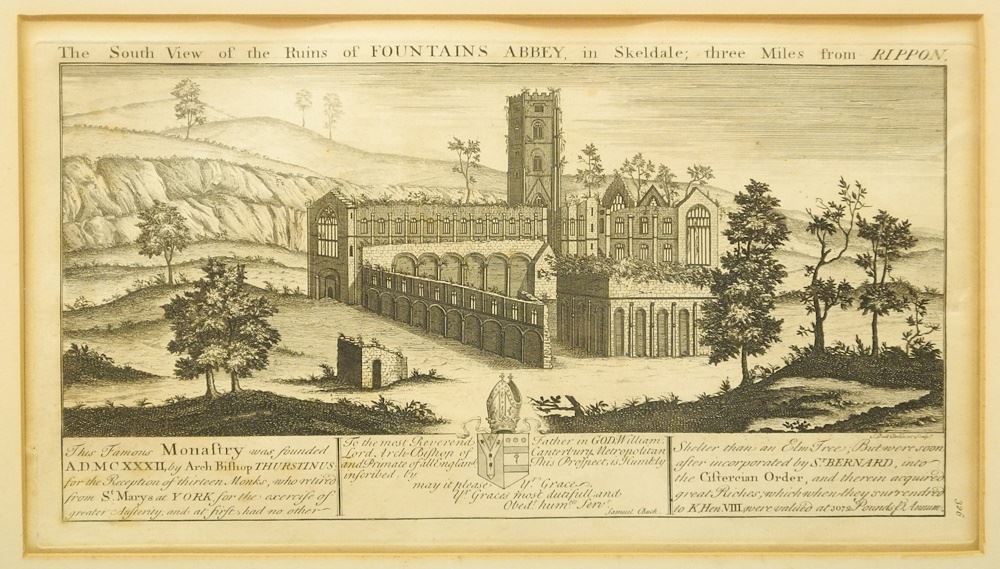 The South View of the Ruins of FOUNTAINS ABBEY, in Skeldale; three Miles from RIPPON.
This Famous Monastry was founded
A.D.MCXXXII, by Arch Bishop THURSTINUS
for the Reception of thirteen Monks, who retired
from St. Marys at YORK, for the exercise of
greater Austerity, and at first had no other
To the most Reverend Father in GOD, William
Lord Arch-Bishop of Canterbury, Metropolitan
and Primate of all England This Prospect, is Humbly
inscribed, by
may it please Yr. Grace
Yr. Graces most dutifull and
Obedt. humble Servt.
Samuel Buck.
Shelter than an Elm Tree; But were soon
after incorporated by St. BERNARD, into
the Cistercian Order, and therein acquired
great Riches; which when they surrendred
to K. Hen. VIII. were valued at Pounds P. Annum.
326